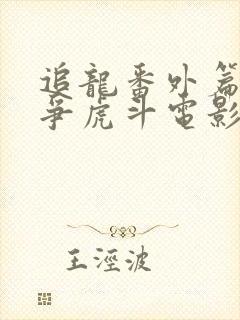 追龍番外篇
爭虎斗電影
王涇波